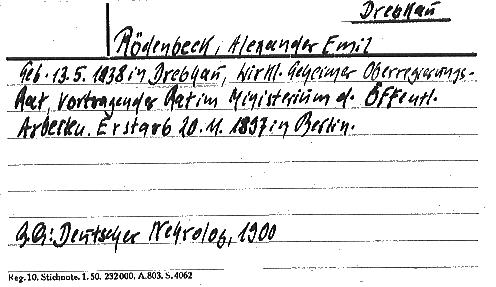 Drebkau
Rödenbeck, Alexander Emil
Geb. 13.5.1838 in Drebkau, Wirkl. Geheimer Oberregierungs-
Rat, Vortragender Rat im Ministerium d. Öffentl.
Arbeiten. Er starb 20.11.1897 in Berlin.
BG: Deutscher Nekrolog, 1900
Reg. 10. Stichnote. 1. 50. 232000. A.803. S.4062